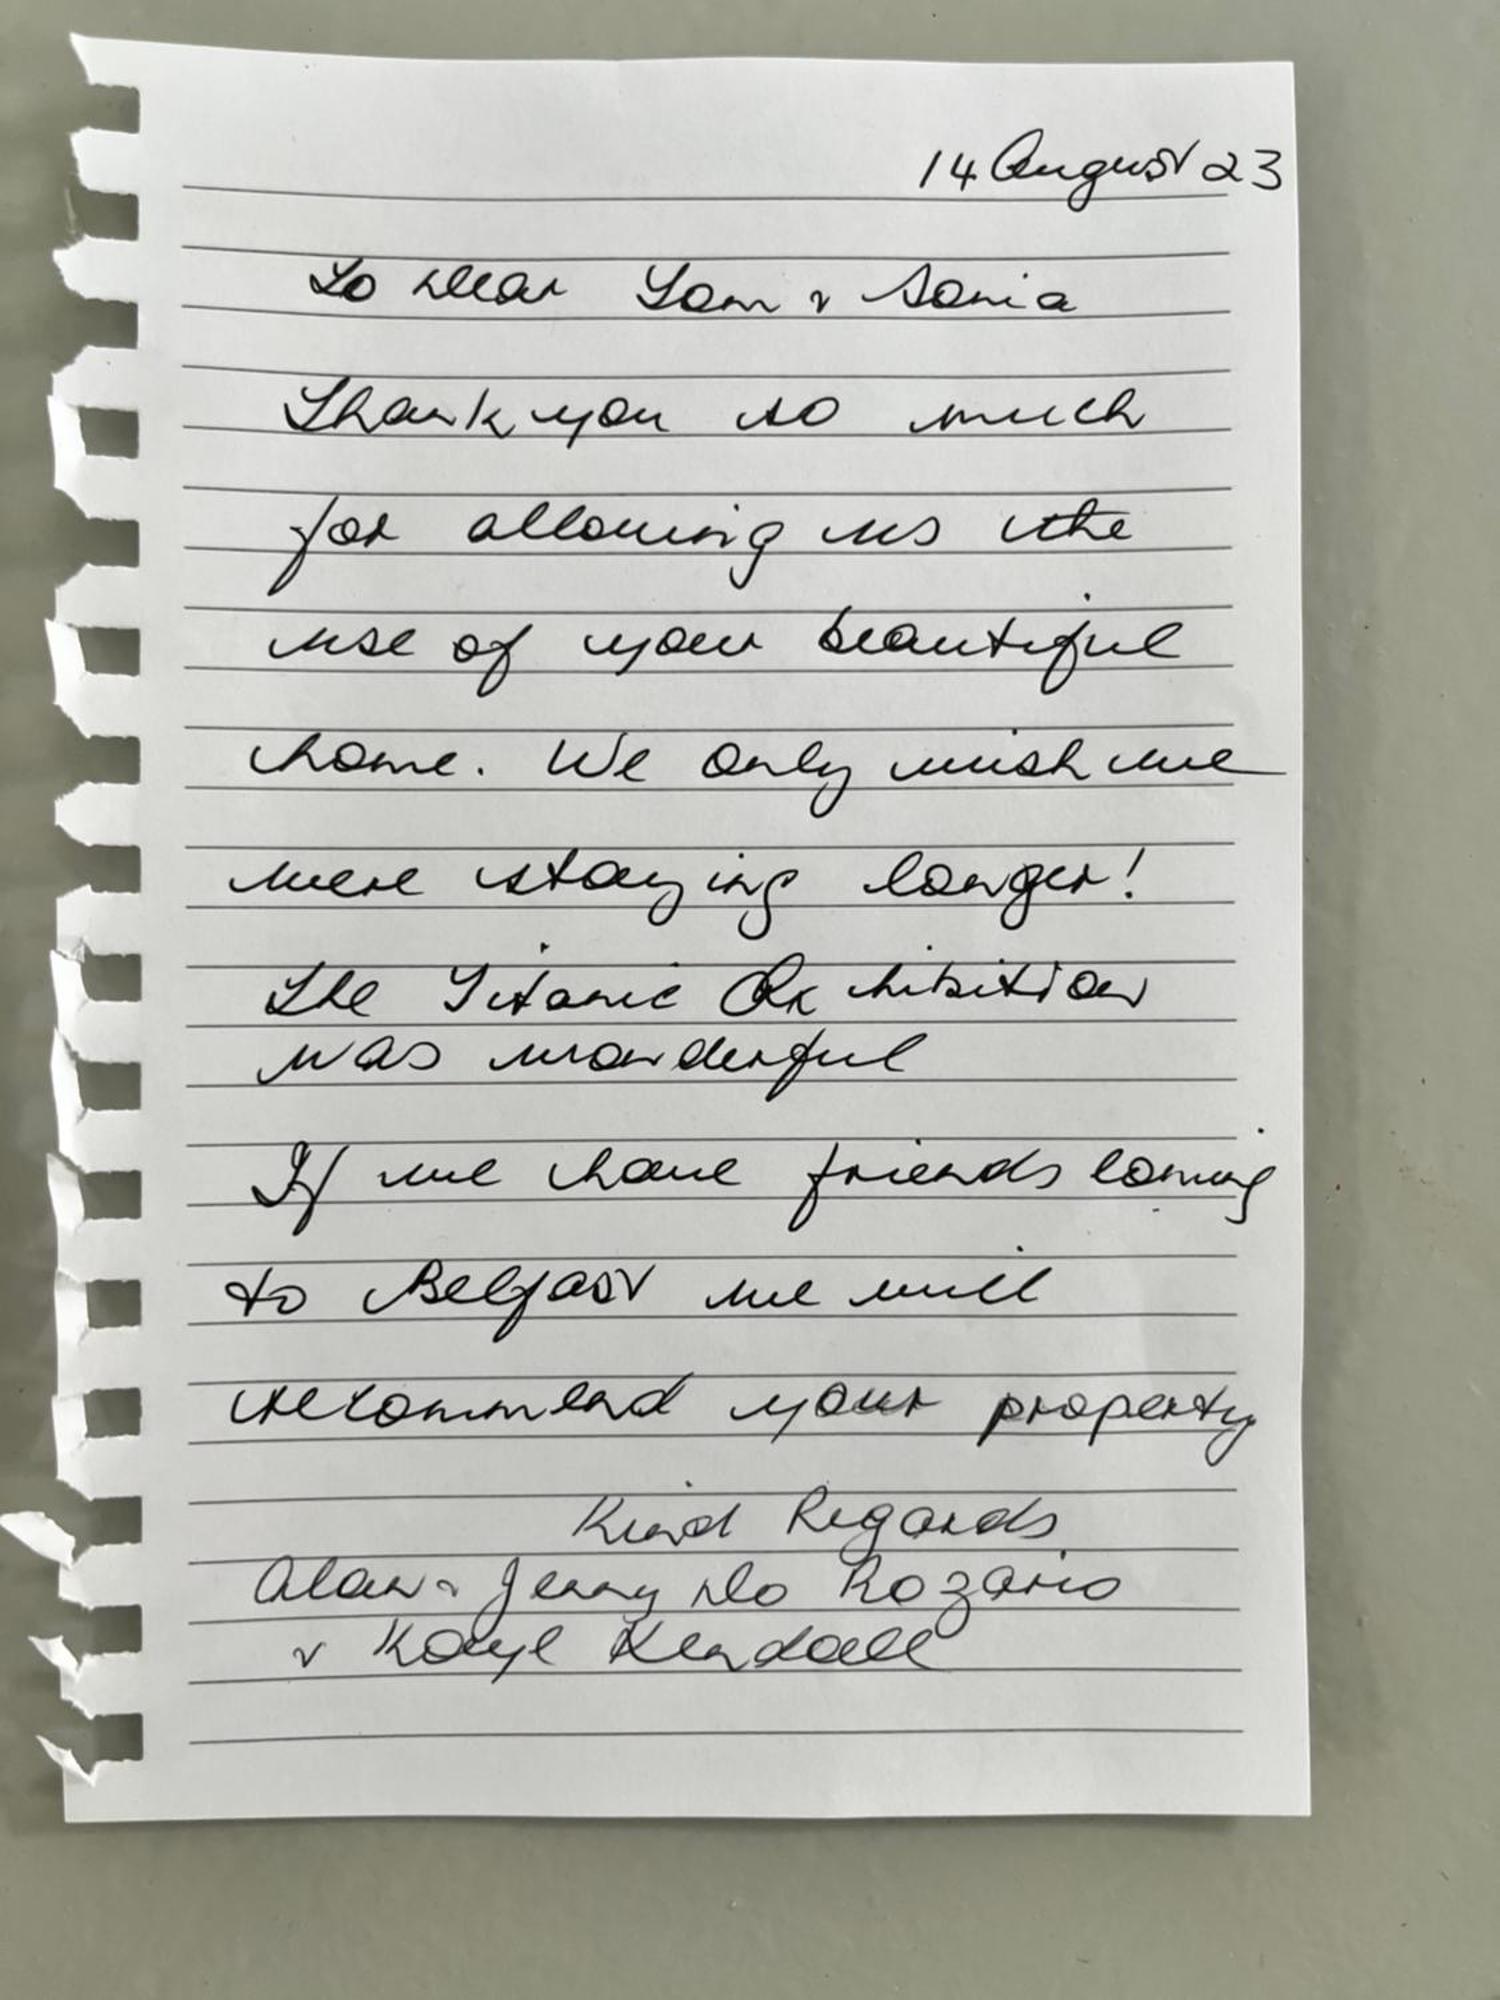 14 August 23
To dear Tom & Sonia
Thank you so much
for allowing us the
use of your beautiful
home. We only wish we
were staying longer!
The Titanic Exhibition
was wonderful
If we have friends coming
to Belfast we will
recommend your property
Kind Regards
Alan & Jenny Do Rozario
& Kaye Kendall